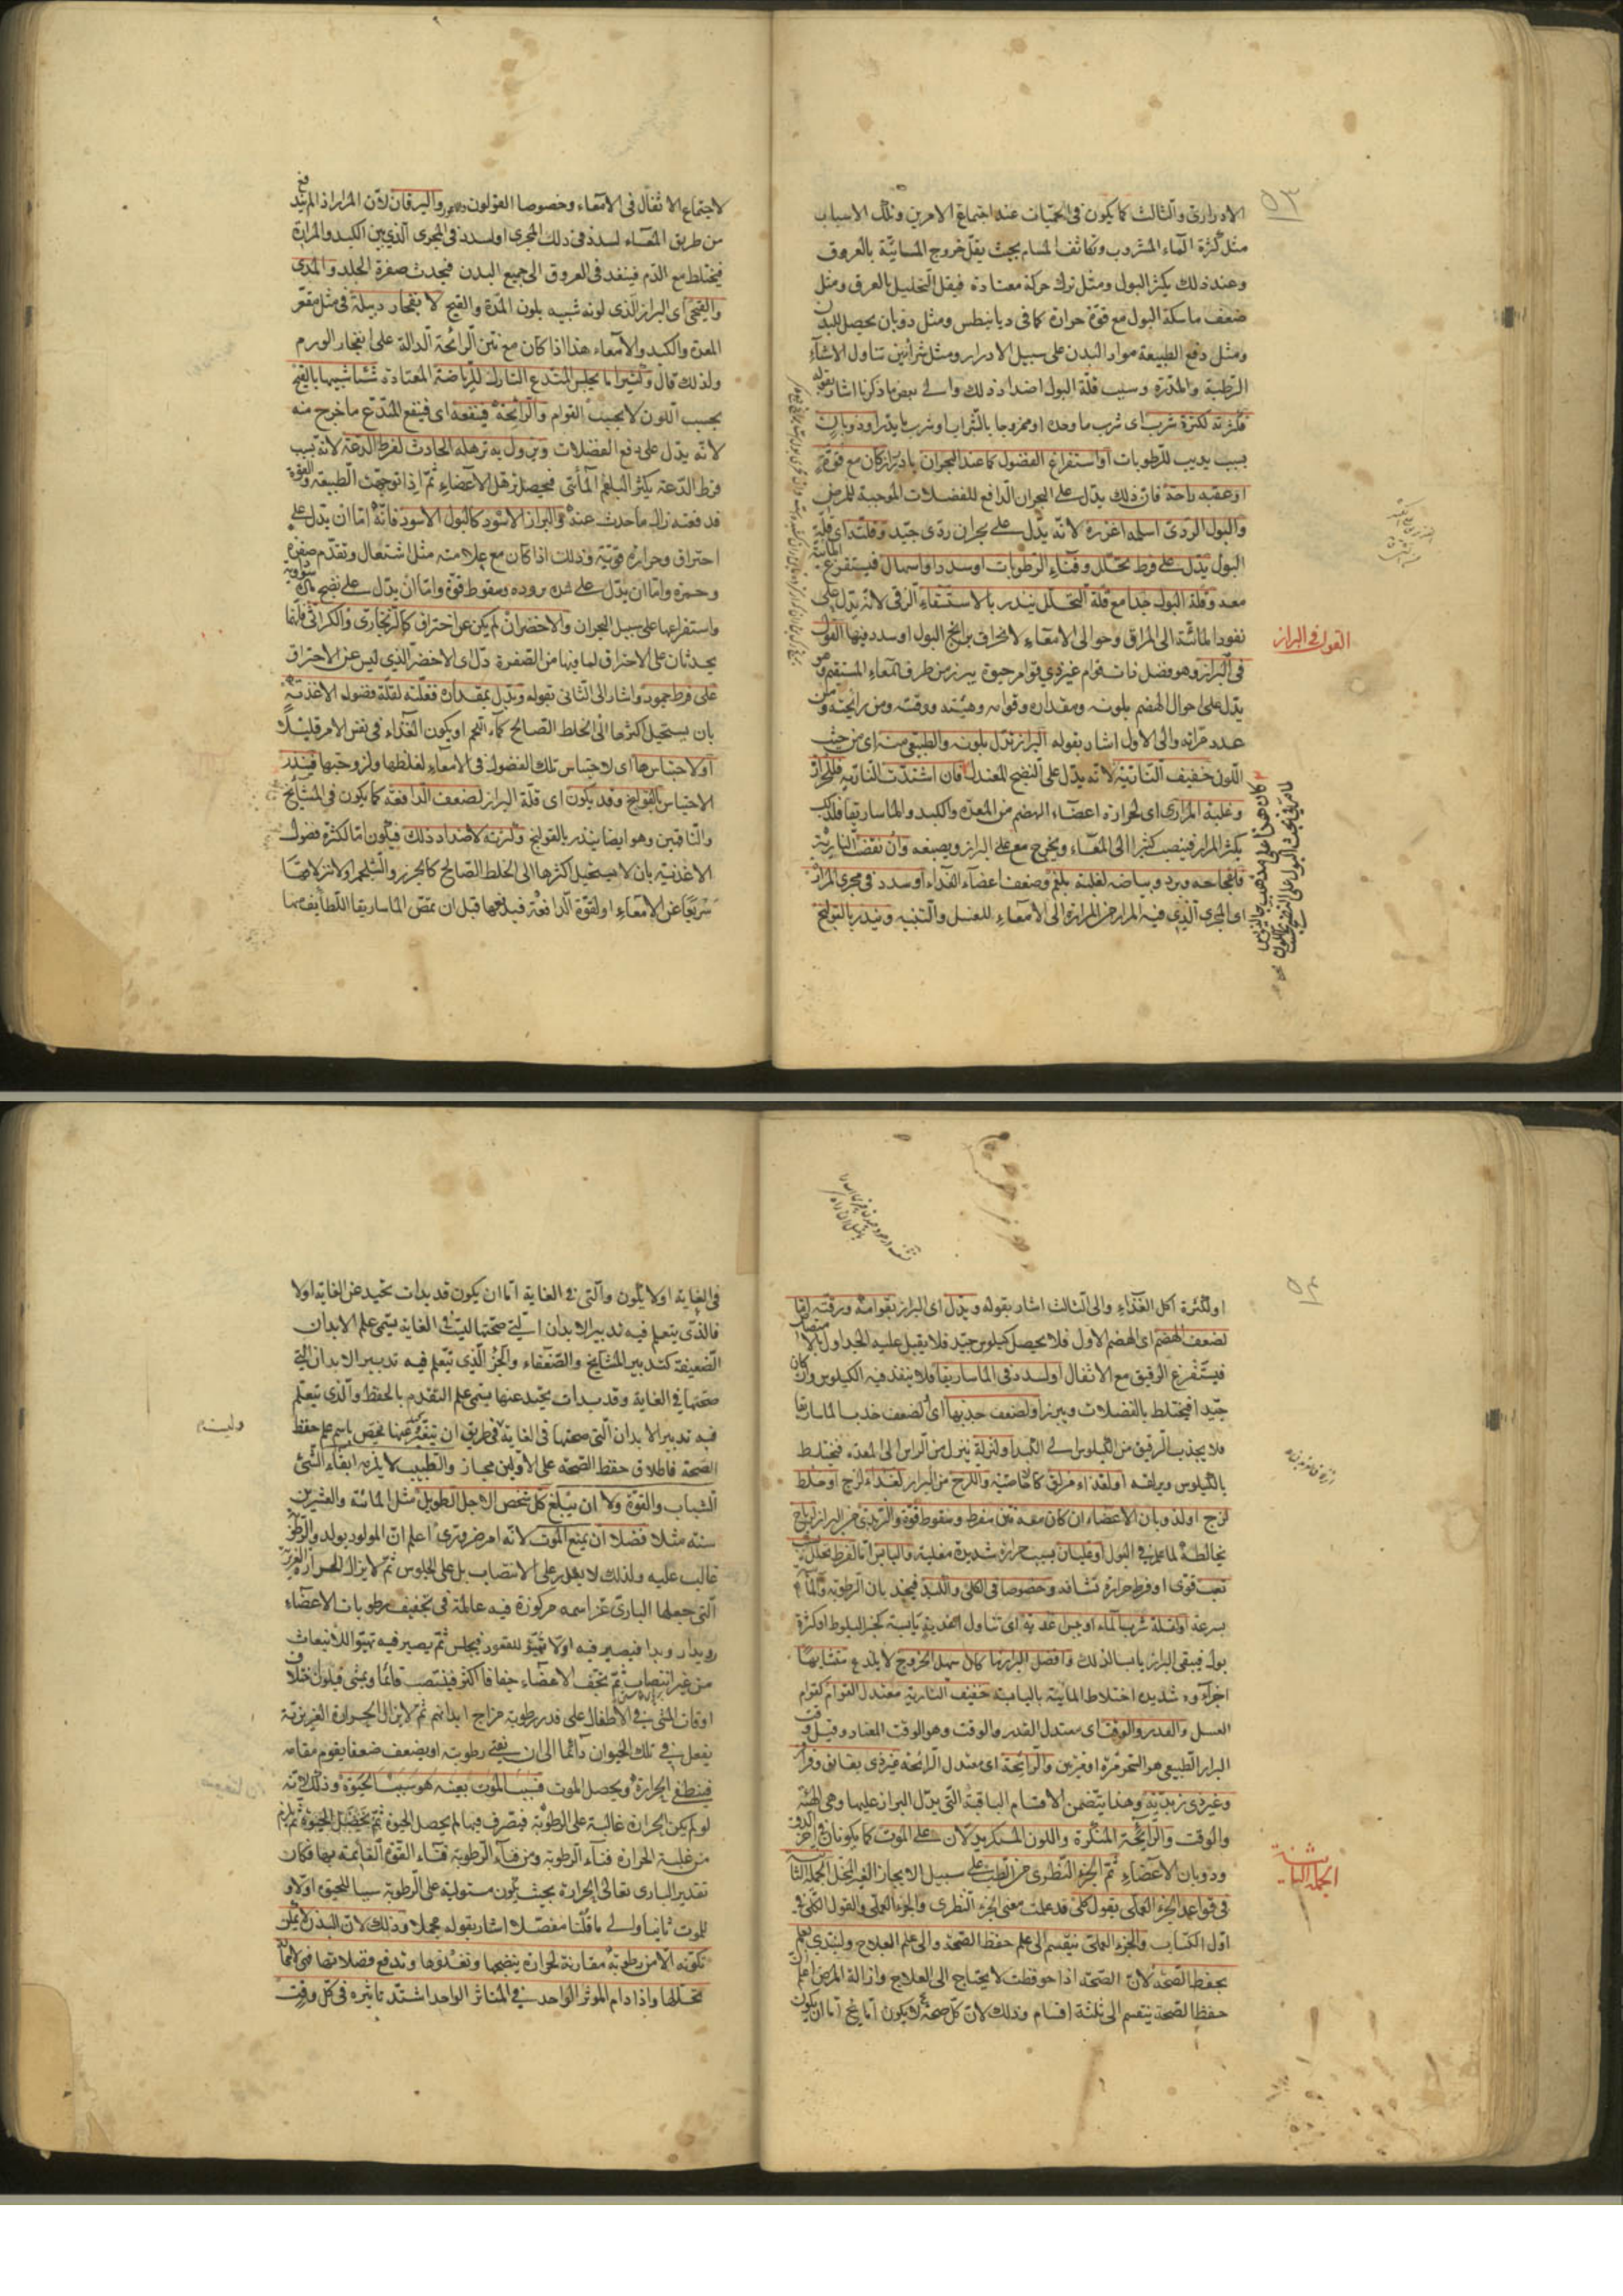 الادرارى والثالث كما يكون فى الحميات عند اجتماع الامرين وتلك الاسباب
مثل كثرة الماء المشروب وتكاثف المسام بحيث يقل خروج المائية بالعروق
وعند ذلك يكثر البول ومثل ترك حركة معتادة فيقل التحليل بالعرق ومثل
ضعف ماسكة البول مع قوة حرارة كما فى ديانيطس ومثل ذوبان يحصل للبدن
ومثل دفع الطبيعة مواد البدن على سبيل الادرار ومثل تناول الاشياء
الرطبة والمدرة وسبب قلة البول اضداد ذلك والى بعض ما ذكرنا اشار بقوله
فكثرته لكثرة شرب اى شرب ماء وحده او ممزوجا بالشراب او شرب ما يدر او ذوبان
بسبب يذيب للرطوبات او استفراغ الفضول كما عند البحران كان مع قوة
او عقبه راحة فان ذلك يدل على البحران الدافع للفضلات الموجبة للمرض
والبول الردى اسلمه اغزره لانه يدل على بحران ردى جيد وقلته اى قلة
البول يدل على فرط تحلل وفناء الرطوبات او سدد او اسهال فيستفرغ المائية
معه وقلة البول جدا مع قلة التحلل ينذر بالاستسقاء الزقى لانه يدل على
نفوذ المائية الى المراق وحوالى الامعاء لانخراق برابخ البول او سدد فيها القول
القول فى البراز
فى البراز وهو فضل ذات قوام غير ذى قوام حيوة يبرز من طرف المعاء المستقيم وهو
يدل على احوال الهضم بلونه ومقداره وقوامه وهيئته ووقته ومن رائحته ومن
عدد مراته والى الاول اشار بقوله البراز يدل بلونه والطبيعى منه اى من حيث
اللون خفيف النارية لانه يدل على النضج المعتدل فان اشتدت النارية فلحرارة
وغلبة المرار اى لحرارة اعضاء الهضم من المعدة والكبد والماساريقا فلذلك
يكثر المرار فينصب كثيرا الى المعاء ويخرج مع على البراز ويصبغه وان نقصت النارية
فلفجاجة وبرد وبياضه لغلبة بلغم وضعف اعضاء الغذاء او سدد فى مجرى المرار
اى المجرى الذى فيه المرار من المرارة الى الامعاء للغسل والتنبيه وينذر بالقولنج
لاجتماع الاثفال فى الامعاء وخصوصا القولون واليرقان لان المرار اذا لم يندفع
من طريق المعاء لسدة فى ذلك المجرى او لسدد فى المجرى الذى بين الكبد والمرارة
فيختلط مع الدم فينفذ فى العروق الى جميع البدن فيحدث صفرة الجلد والمدى
والقيحى اى البراز الذى لونه شبيه بلون المدة والقيح لانفجار دبيلة فى مثل مقعر
المعدة والكبد والامعاء هذا اذا كان مع نتن الرائحة الدالة على انفجار الورم
ولذلك قال وكثيرا ما يجلس المتدع التارك للرياضة المعتادة شيئا شبيها بالقيح
بحسب اللون لا بحسب القوام والرائحة فينفعه اى فينفع المتدع ما خرج منه
لانه يدل على دفع الفضلات ويزول به ترهله الحادث لفرط الدعة لانه بسبب
فرط الدعة يكثر البلغم المائى فيحصل ترهل الاعضاء ثم اذا توجهت الطبيعة والقوة
قد دفعته زال ما حدث عنه والبراز الاسود كالبول الاسود فانه اما ان يدل على
احتراق وحرارة قوية وذلك اذا كان مع علامته مثل اشتعال وتقدم صفرة
وحمرة واما ان يدل على شدة برودة وسقوط قوة واما ان يدل على نضج مادة سوداوية
واستفراغها على سبيل البحران والاخضر ان لم يكن عن احتراق كالزنجارى والكراثى فانهما
يحدثان على الاحتراق لما فيها من الصفرة دل اى الاخضر الذى ليس عن الاحتراق
على فرط جمود واشار الى الثانى بقوله ويدل بمقداره فقلته لقلة فضول الاغذية
بان يستحيل اكثرها الى الخلط الصالح كماء اللحم او يكون الغذاء فى نفس الامر قليلا
او لاحتباسها اى لاحتباس تلك الفضول فى الامعاء لغلظها ولزوجتها فينذر
الاحتباس بالقولنج وقد يكون اى قلة البراز لضعف الدافعة كما يكون فى المشايخ
والناقهين وهو ايضا ينذر بالقولنج وكثرته لاضداد ذلك فيكون اما لكثرة فضول
الاغذية بان لا يستحيل اكثرها الى الخلط الصالح كالجزر والشلجم او لانزلاقها
سريعا عن الامعاء او لقوة الدافعة فيدفعها قبل ان تمص الماساريقا اللطايف منها
او لكثرة اكل الغذاء والى الثالث اشار بقوله ويدل اى البراز بقوامه ورقته اما
لضعف الهضم اى الهضم الاول فلا يحصل كيلوس جيد فلا يقبل عليه الجداول بالامتصاص
فيستفرغ الرقيق مع الاثفال او لسدد فى الماساريقا فلا ينفذ فيه الكيلوس وان كان
جيدا فيختلط بالفضلات ويبرز او لضعف جذبها اى لضعف جذب الماساريقا
فلا يجذب الرقيق من الكيلوس الى الكبد او لنزلة ينزل من الراس الى المعدة فيختلط
بالكيلوس ويزلقه او لغذاء مزلق كالاجاصية واللزج من البراز لغذاء لزج او خلط
لزج او لذوبان الاعضاء ان كان معه نتن مفرط وسقوط قوة والزبدى من البراز لرياح
يخالطه لما علم فى البول او غليان بسبب حرارة شديدة مغلية واليابس اما لفرط تحلل
تعب قوى او فرط حرارة نشافة وخصوصا فى الكلى والكبد فيجذبان الرطوبة والماء
بسرعة او لقلة شرب الماء او يبس غذية اى تناول اغذية يابسة كخبز البلوط او كثرة
بول فيبقى البراز يابسا لذلك وافضل البراز ما كان سهل الخروج لا يلذع متشابها
اجزاؤه شديد اختلاط المائية باليابسة خفيف النارية معتدل القوام كقوام
العسل والقدر والوقت اى معتدل القدر والوقت وهو الوقت المعتاد وقيل وقت
البراز الطبيعى هو السحر مرة او مرتين والرائحة اى معتدل الرائحة غير ذى بقابق وقراقر
وغير ذى زبدية وهذا يتضمن الاقسام الباقية التى يدل البراز عليها وهى الهيئة
والوقت والرائحة المنكرة واللون المستكره يدلان على الموت كما يكونان فى آخر الدق
وذوبان الاعضاء ثم الجزء النظرى من الطب على سبيل الايجاز الغير المخل الجملة الثانية
الجملة الثانية
فى قواعد الجزء العملى بقول كلى قد علمت معنى الجزء النظرى والجزء العملى والقول الكلى فى
اول الكتاب والجزء العملى ينقسم الى علم حفظ الصحة والى علم العلاج ولنبتدى بعلم
بحفظ الصحة لان الصحة اذا حوفظت لا يحتاج الى العلاج وازالة المرض اعلم ان
حفظ الصحة ينقسم الى ثلثة اقسام وذلك لان كل صحة لا يخ اما ان يكون
فى الغاية او لا يكون والتى فى الغاية اما ان يكون قد بدات تحيد عن الغاية او لا
فالذى يتعلم فيه تدبير الابدان التى صحتها ليست فى الغاية يسمى علم الابدان
الضعيفة كتدبير المشايخ والضعفاء والجزء الذى يتعلم فيه تدبير الابدان التى
صحتها فى الغاية وقد بدات تحيد عنها يسمى علم التقدم بالحفظ والذى يتعلم
فيه تدبير الابدان التى صحتها فى الغاية فى طريق ان يتغير عنها يخص باسم علم حفظ
الصحة فاطلاق حفظ الصحة على الاولين مجاز والطبيب لا يلزمه ابقاء الشئ
الشباب والقوة ولا ان يبلغ كل شخص الاجل الطويل مثل المائة والعشرين
سنة مثلا فضلا ان يمنع الموت لانه امر ضرورى اعلم ان المولود يولد والرطوبة
غالب عليه ولذلك لا يقدر على الانتصاب بل على الجلوس ثم لا يزال الحرارة الغريزية
التى جعلها البارى عز اسمه مركوزة فيه عاملة فى تجفيف رطوبات الاعضاء
رويدا رويدا فيصير فيه اولا تهيؤ للقعود فيجلس ثم يصير فيه تهيؤ للانبعاث
من غير انتصاب ثم تجف الاعضاء جفافا اكثر فينتصب قائما ويمشى فيكون اختلاف
اوقات المشى فى الاطفال على قدر رطوبة مزاج ابدانهم ثم لا يزال الحرارة الغريزية
يفعل فى تلك الحيوان دائما الى ان يفنى رطوبته او يضعف ضعفا يقوم مقامه
فينطفى الحرارة ويحصل الموت فسبب الموت بعينه هو سبب الحيوة وذلك لانه
لو لم يكن الحرارة غالبة على الرطوبة فيتصرف فيها لم يحصل الحيوة ثم بتحصيل الحيوة ثم يلزم
من غلبة الحرارة فناء الرطوبة ومن فناء الرطوبة فناء القوة القائمة بها فكان
تقدير البارى تعالى الحرارة بحيث يكون مستولية على الرطوبة سببا للحيوة اولا و
للموت ثانيا والى ما قلنا مفصلا اشار بقوله مجملا وذلك لان البدن لا يمكن
تكونه الا من رطوبة مقارنة لحرارة ينضجها وتغذوها وتدفع فضلاتها فهى لا محالة
تحللها واذا دام المؤثر الواحد فى المتاثر الواحد اشتد تاثيره فى كل وقت